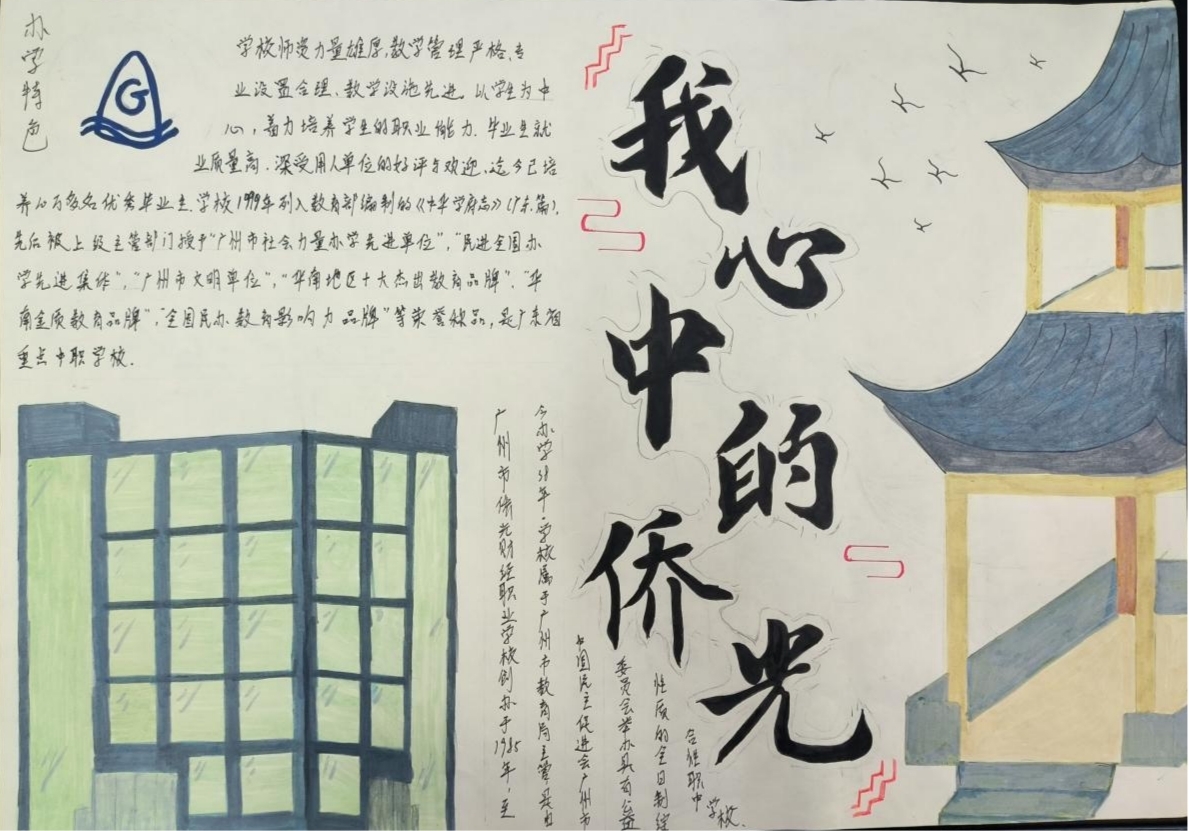 办学特色
G
学校师资力量雄厚,教学管理严格,专
业设置合理、教学设施先进。以学生为中
心,着力培养学生的职业能力.毕业生就
业质量高.深受用人单位的好评与欢迎、迄今已培
养心万多名优秀毕业生.学校1999年列入教育部编制的《中华学府志》(广东篇),
先后被上级主管部门授予"广州市社会力量办学先进单位","民进全国办
学先进集体","广州市文明单位","华南地区十大杰出教育品牌"."华
南金质教育品牌","全国民办教育影响力品牌"等荣誉称品,是广东省
重点中职学校.
我心中的侨光
广州市侨光财经职业学校创办于1985年,至
今办学38年.学校属于广州市教育局主管是由
中国民主促进会广州市
委员会举办具有公益
性质的全日制综
合性职中
学校.